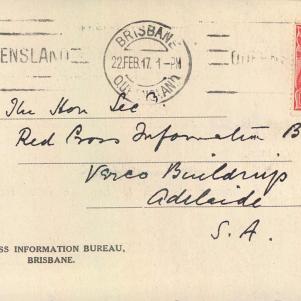 ENSLAND
BRISBANE
22 FEB. 17. 1-PM
QUEENSLAND
QUEENS
The Hon Sec
Red Cross Information B
Verco Buildings
Adelaide
S. A.
SS INFORMATION BUREAU,
BRISBANE.